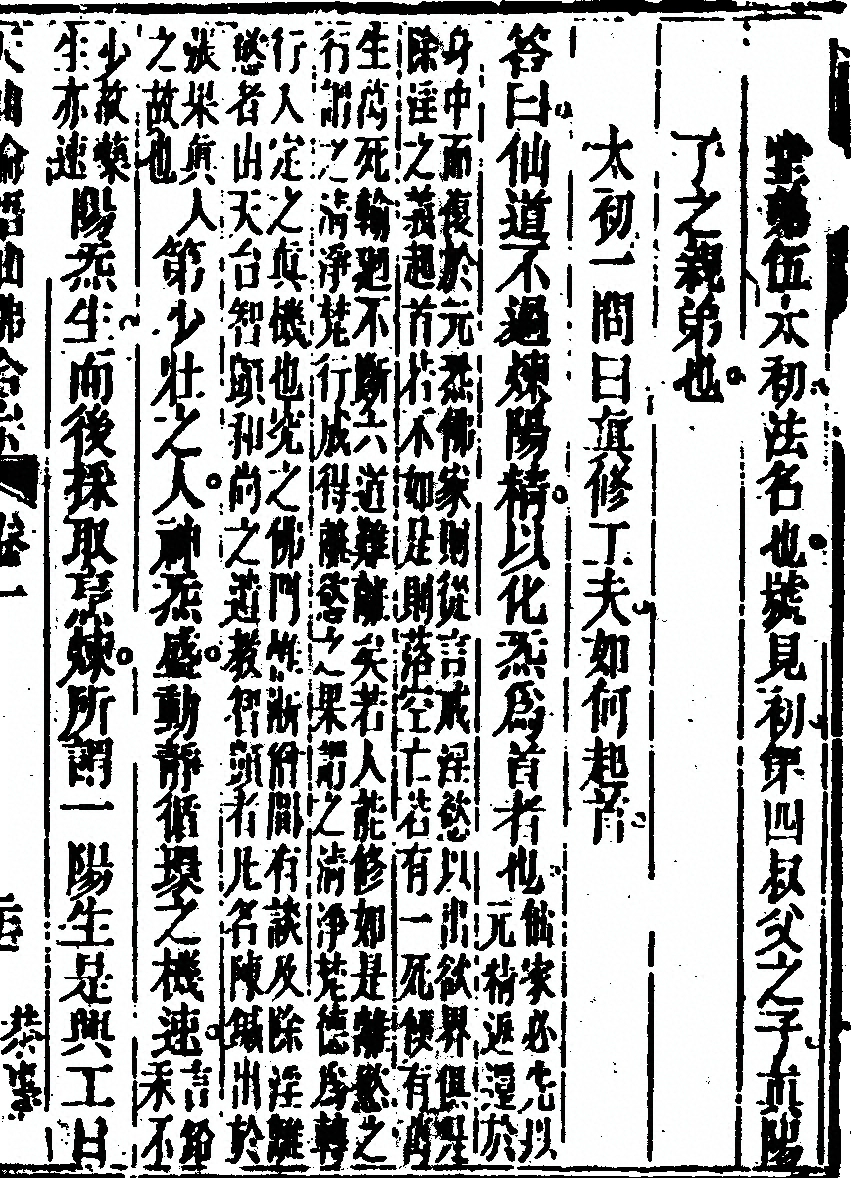 堂弟伍太初法名也號見初第四叔父之子真陽
了之親弟也
太初一問曰真修工夫如何起首
答曰仙道不過煉陽精以化炁爲首者也仙家必先以
元精返還於
身中而復於元炁佛家則從言戒淫慾以出欲界俱是
除淫之義起首若不如是則落空亡若有一死候有
生焉死輪廻不斷六道難離矣若人能修如是離慾之
行謂之清淨梵行成得離慾之果謂之清淨梵德爲轉
行入定之真機也究之佛門無漸修間有談及除淫離
慾者出天台智顗和尚之遺教習頭者凡名陳鍼出於
張果真人
之故也第少壯之人神炁盛動靜循環之機速言鉛
汞不
少故藥
生亦速陽炁生而後採取烹煉所謂一陽生是興工日
卷一